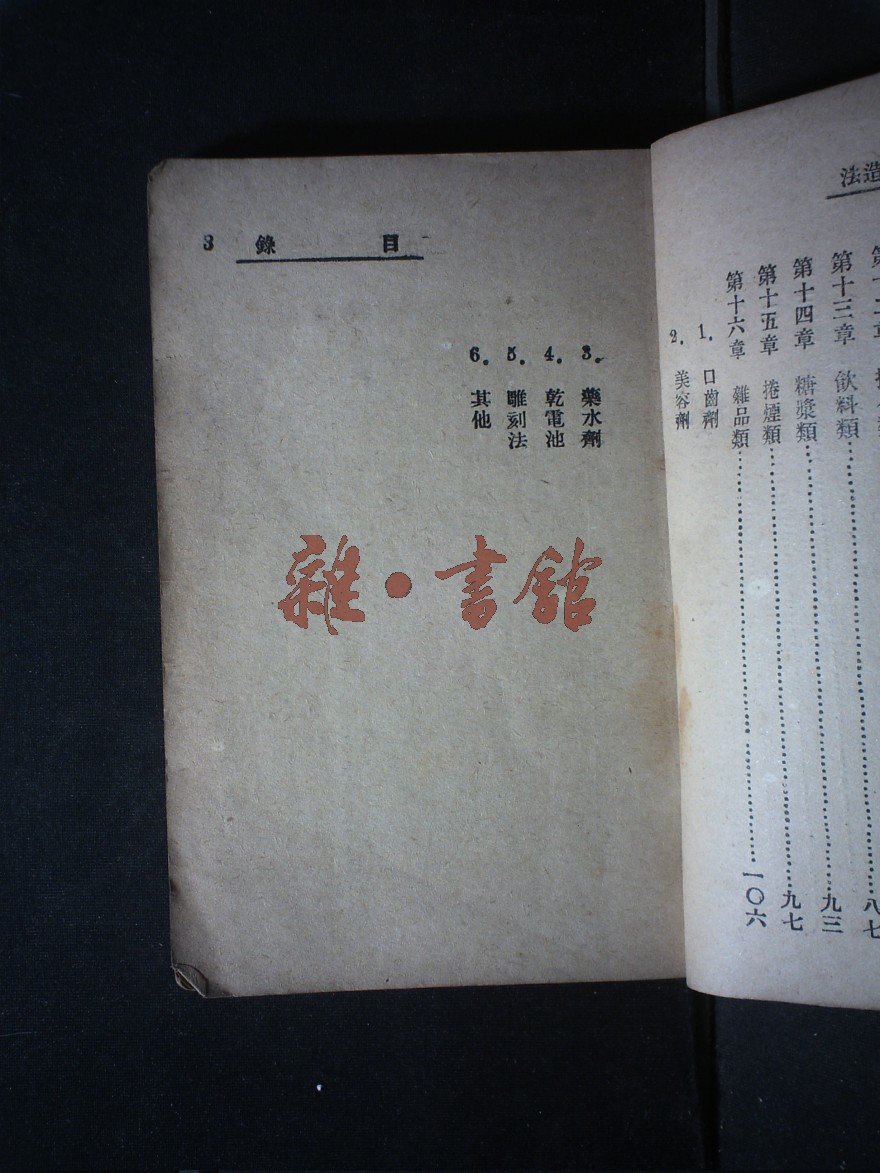 法造
第十三章 飲料類……九三
第十四章 糖漿類……九七
第十五章 捲煙類
第十六章 雜品類……一〇六
1. 口齒劑
2. 美容劑
目錄 3
3. 藥水劑
4. 乾電池
5. 雕刻法
6. 其他
雜·書館